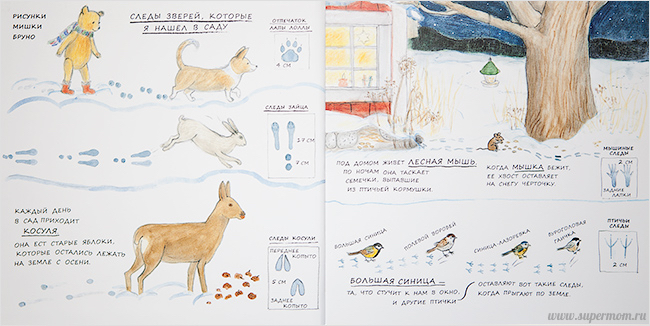 РИСУНКИ
МИШКИ
БРУНО
СЛЕДЫ ЗВЕРЕЙ, КОТОРЫЕ
Я НАШЕЛ В САДУ
ОТПЕЧАТОК
ЛАПЫ ЛОЛЛЫ
4 СМ
СЛЕДЫ ЗАЙЦА
17 СМ
7 СМ
КАЖДЫЙ ДЕНЬ
В САД ПРИХОДИТ
КОСУЛЯ.
ОНА ЕСТ СТАРЫЕ ЯБЛОКИ,
КОТОРЫЕ ОСТАЛИСЬ ЛЕЖАТЬ
НА ЗЕМЛЕ С ОСЕНИ.
СЛЕДЫ КОСУЛИ
ПЕРЕДНЕЕ
КОПЫТО
5 СМ
ЗАДНЕЕ
КОПЫТО
ПОД ДОМОМ ЖИВЕТ ЛЕСНАЯ МЫШЬ.
ПО НОЧАМ ОНА ТАСКАЕТ
СЕМЕЧКИ, ВЫПАВШИЕ
ИЗ ПТИЧЬЕЙ КОРМУШКИ.
КОГДА МЫШКА БЕЖИТ,
ЕЕ ХВОСТ ОСТАВЛЯЕТ
НА СНЕГУ ЧЕРТОЧКУ.
МЫШИНЫЕ
СЛЕДЫ
2 СМ
ЗАДНИЕ
ЛАПКИ
БОЛЬШАЯ СИНИЦА
ПОЛЕВОЙ ВОРОБЕЙ
СИНИЦА-ЛАЗОРЕВКА
БУРОГОЛОВАЯ
ГАИЧКА
ПТИЧЬИ
СЛЕДЫ
2 СМ
БОЛЬШАЯ СИНИЦА —
ТА, ЧТО СТУЧИТ К НАМ В ОКНО,
И ДРУГИЕ ПТИЧКИ
ОСТАВЛЯЮТ ВОТ ТАКИЕ СЛЕДЫ,
КОГДА ПРЫГАЮТ ПО ЗЕМЛЕ.
www.supermom.ru